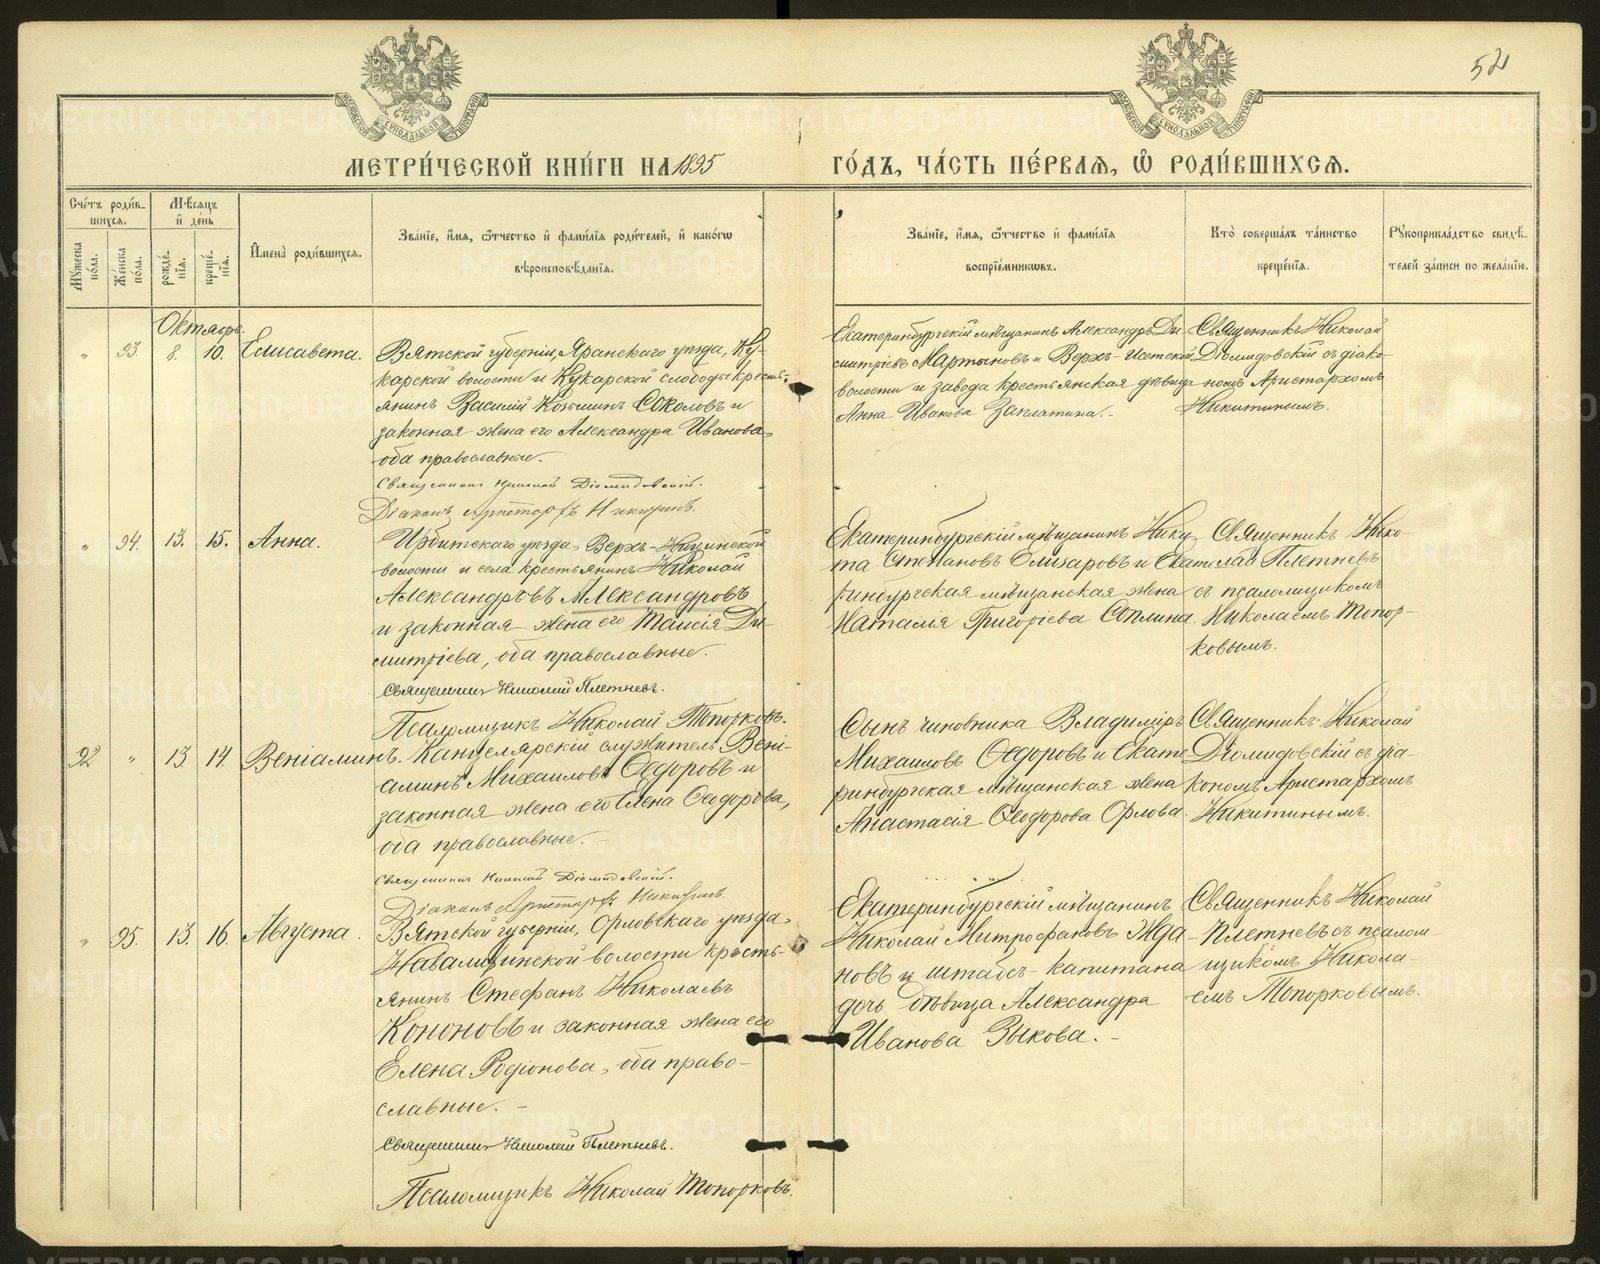 52
МЕТРИ́ЧЕСКОЙ КНИ́ГИ НА 1895 ГО́ДЪ, ЧА́СТЬ ПЕ́РВАѦ, Ѽ РОДИ́ВШИХСѦ.
Сче́тъ роди́в-
шихсѧ.
Мꙋ́жеска
по́ла.
Же́нска
по́ла.
Мѣ́сяцъ
и҆ де́нь
рожде́-
нїѧ.
креще́-
нїѧ.
И҆мена̀ роди́вшихсѧ.
Зва́нїе, и҆́мѧ, ѻ҆́тчество и҆ фами́лїѧ роди́телей, и҆ како́гѡ
вѣроисповѣ́данїѧ.
Зва́нїе, и҆́мѧ, ѻ҆́тчество и҆ фами́лїѧ
воспрїе́мникѡвъ.
Кто̀ соверша́лъ та́инство
креще́нїѧ.
Рꙋкоприкла́дство свидѣ́-
телей за́писи по жела́нїю.
Октябрь.
" 93. 8. 10. Елисавета.
Вятской губерніи, Яранскаго уѣзда, Ку-
карской волости и Кукарской слободы кресть-
янинъ Василій Козьминъ Соколовъ и
законная жена его Александра Иванова,
оба православные.
Священникъ Николай Діомидовскій.
Діаконъ Аристархъ Никитинъ.
Екатеринбургскій мѣщанинъ Александръ Ди-
митріевъ Мартыновъ и Верхъ-Исетской
волости и завода крестьянская дѣвица
Анна Иванова Заплатина.-
Священникъ Николай
Діомидовскій съ діако-
номъ Аристархомъ
Никитинымъ.
" 94. 13. 15. Анна.
Ирбитскаго уѣзда, Верхъ-Ницинской
волости и села крестьянинъ Николай
Александровъ Александровъ
и законная жена его Таисія Ди-
митріева, оба православные.
Священникъ Николай Плетневъ.
Псаломщикъ Николай Топорковъ.
Екатеринбургскій мѣщанинъ Ники-
та Степановъ Елизаровъ и Екате-
ринбургская мѣщанская жена
Наталія Григоріева Соплина.
Священникъ Нико-
лай Плетневъ
съ псаломщикомъ
Николаемъ Топор-
ковымъ.
92 " 13 14. Веніаминъ.
Канцелярскій служитель Вені-
аминъ Михаиловъ Ѳедоровъ и
законная жена его Елена Ѳеодорова,
оба православные.
Священникъ Николай Діомидовскій.
Діаконъ Аристархъ Никитинъ.
Сынъ чиновника Владиміръ
Михаиловъ Ѳедоровъ и Екате-
ринбургская мѣщанская жена
Анастасія Ѳеодорова Орлова.
Священникъ Николай
Діомидовскій съ діа-
кономъ Аристархомъ
Никитинымъ.
" 95. 13. 16. Августа.
Вятской губерніи, Орловскаго уѣзда,
волости кресть-
янинъ Стефанъ Николаевъ
Кононовъ и законная жена его
Елена Родіонова, оба право-
славные. -
Священникъ Николай Плетневъ.
Псаломщикъ Николай Топорковъ.
Екатеринбургскій мѣщанинъ
Николай Митрофановъ Жда-
новъ и штабсъ-капитана
дочь дѣвица Александра
Иванова Зыкова. -
Священникъ Николай
Плетневъ съ псалом
щикомъ Никола-
емъ Топорковымъ.
METRIKI.GASO-URAL.RU